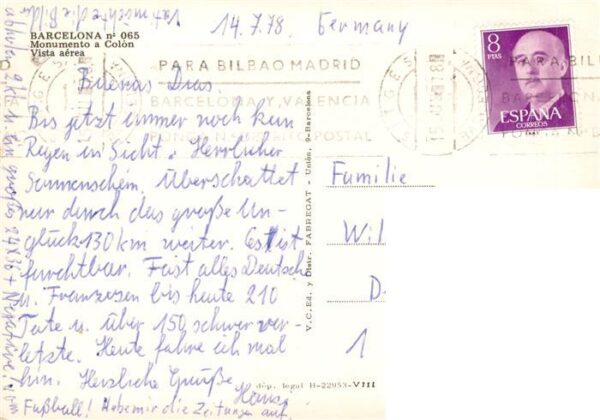 14.7.78 Germany
BARCELONA nº 065
Monumento a Colón
Vista aérea
PARA BILBAO MADRID
BARCELONA Y VALENCIA
POSTAL
PARA BIL
8
PTAS
ESPAÑA
CORREOS
Buenas Dias
Bis jetzt immer noch kein
Regen in Sicht. Herrlicher
Sonnenschein. Überschattet
nur durch das große Un-
glück 130 km weiter. Es ist
furchtbar. Fast alles Deutsche
u. Franzosen bis heute 210
Tote u. über 150 schwer ver-
letzte. Heute fahre ich mal
hin. Herzliche Grüße
Hans
Fußball! Hebe mir die Zeitungen auf.
Familie
Wil
D
1
V.C. Ed. y Distr. FABREGAT - Unión, 9-Barcelona
dép. legal B-22953-VIII
24x36 + Negative
die Bilder